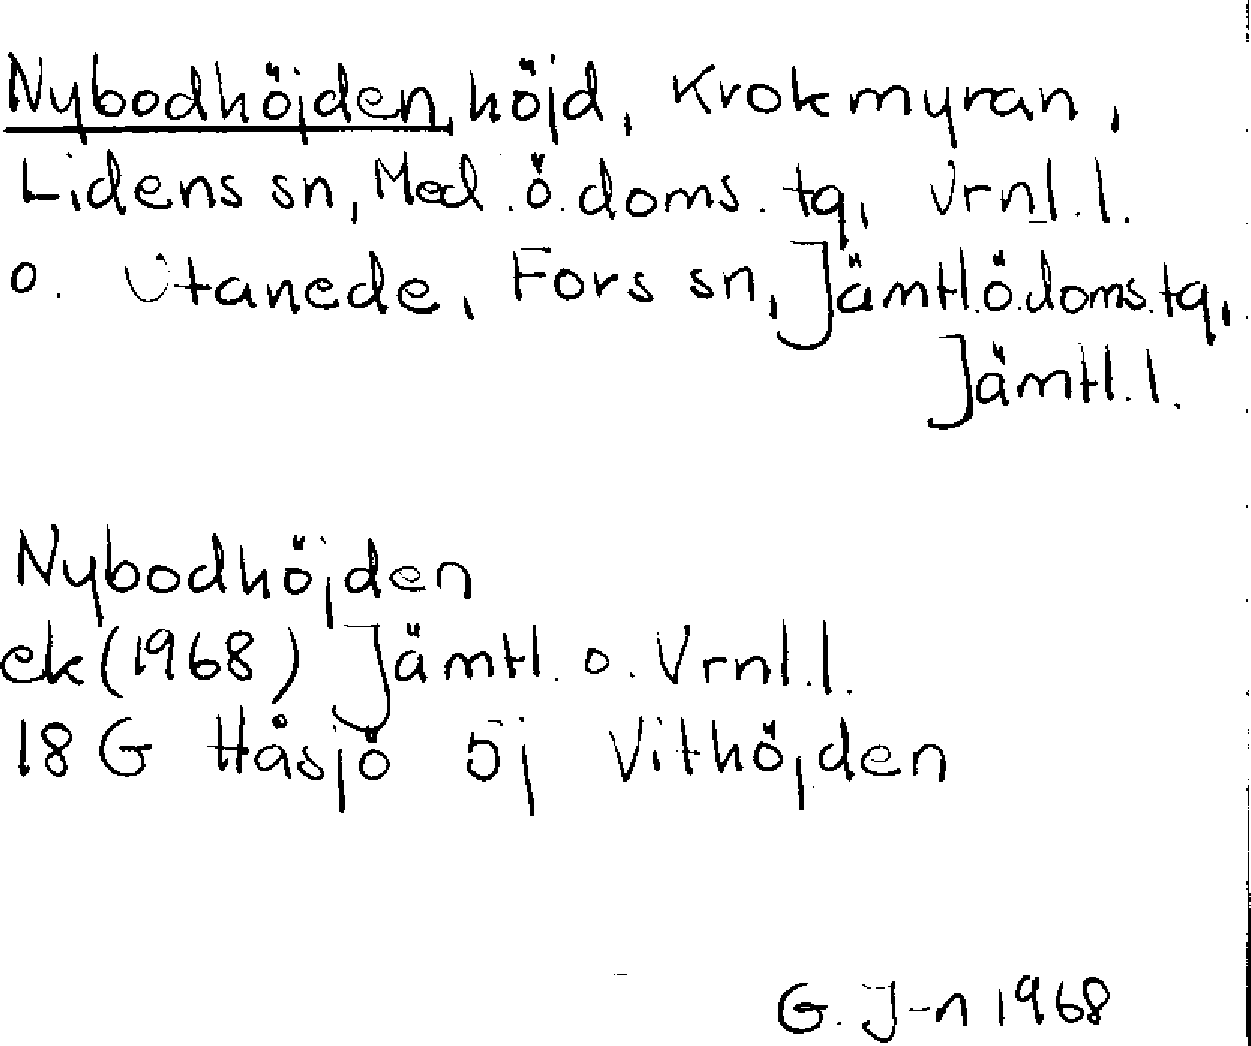 Nybodhöjden, höjd, Krokmyran,
Lidens sn, Med.ö.doms.tg, Vrnl.l.
o. Utanede, Fors sn, Jämtl.ö.doms.tg,
Jämtl.l.
Nybodhöjden
ek (1968) Jämtl. o. Vrnl.l.
18 G Håsjö 5j Vithöjden
G. J-n 1968